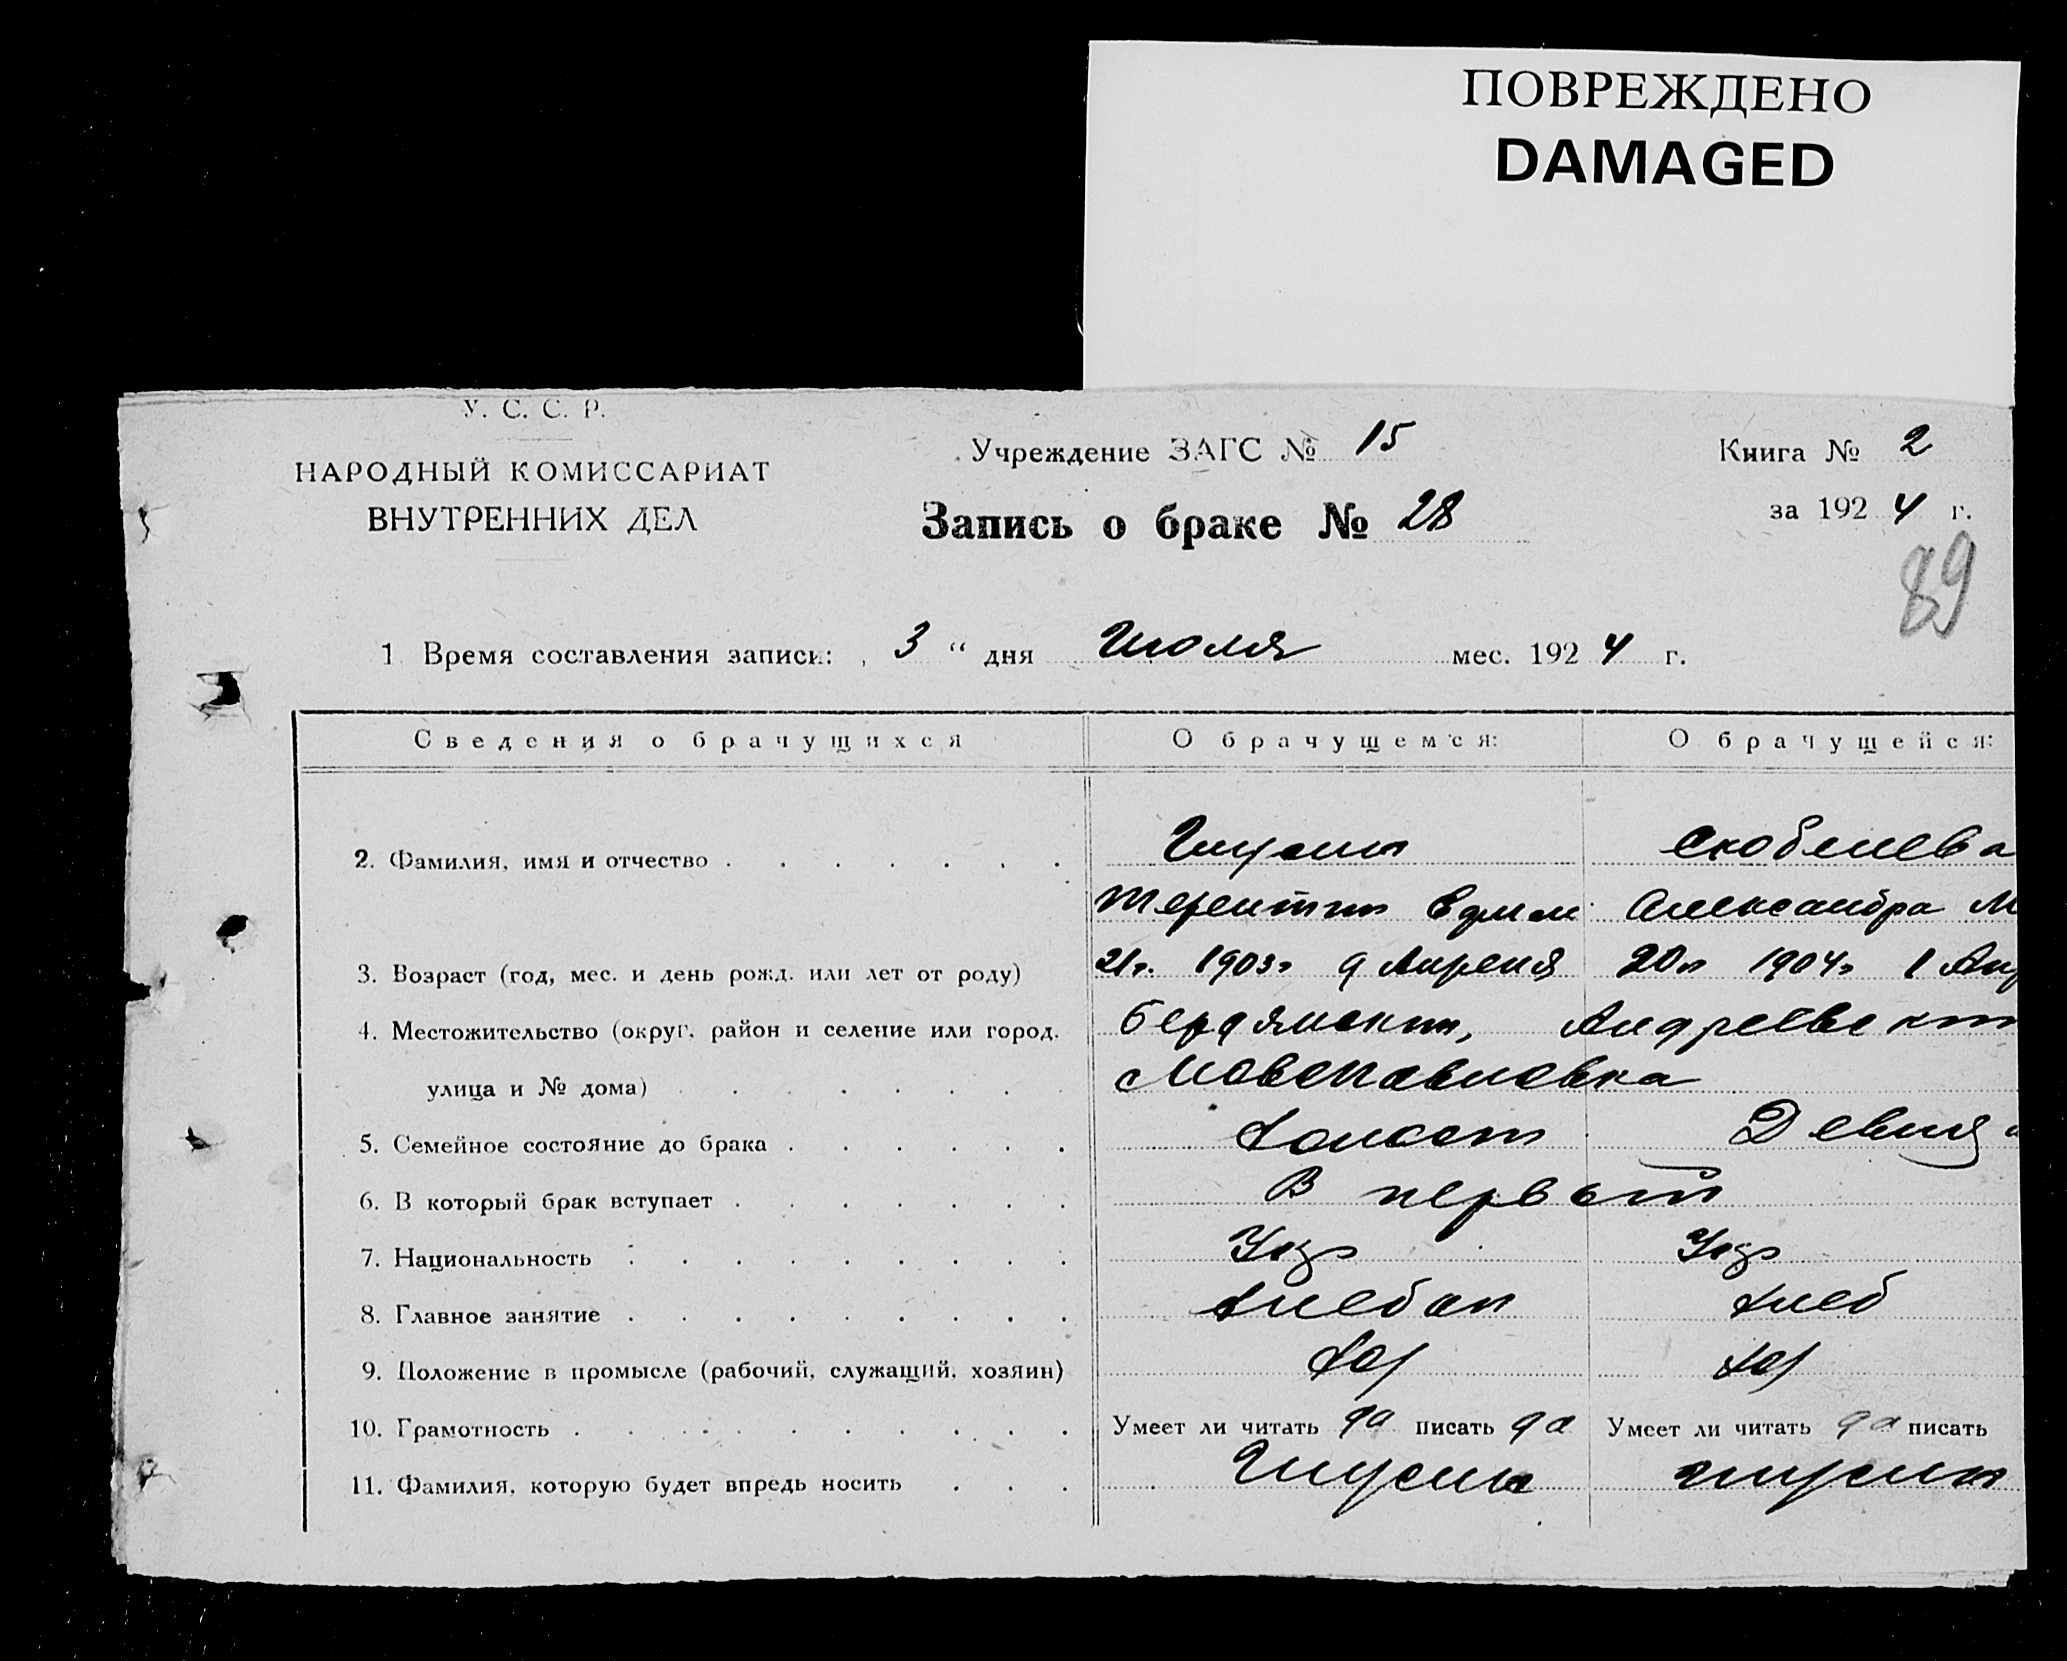 ПОВРЕЖДЕНО
DAMAGED
У. С. С. Р.
НАРОДНЫЙ КОМИССАРИАТ
ВНУТРЕННИХ ДЕЛ
Учреждение ЗАГС № 15
Книга № 2
Запись о браке № 28
за 1924 г.
89
1 Время составления записи: „ 3 “ дня Июля мес. 1924 г.
Сведения о брачущихся О брачущемся: О брачущейся:
2. Фамилия, имя и отчество Скобелева
Александра М
3. Возраст (год, мес. и день рожд. или лет от роду) 21г. 1903г 9 Апреля 20л 1904г 1 Апр
4. Местожительство (округ, район и селение или город, Бердянский, Андреевский
улица и № дома) Новопавловка
5. Семейное состояние до брака Холост Девица
6. В который брак вступает В первый
7. Национальность Укр Укр
8. Главное занятие Хлебоп Хлеб
9. Положение в промысле (рабочий, служащий, хозяин) Хоз Хоз
10. Грамотность Умеет ли читать да писать да Умеет ли читать да писать
11. Фамилия, которую будет впредь носить